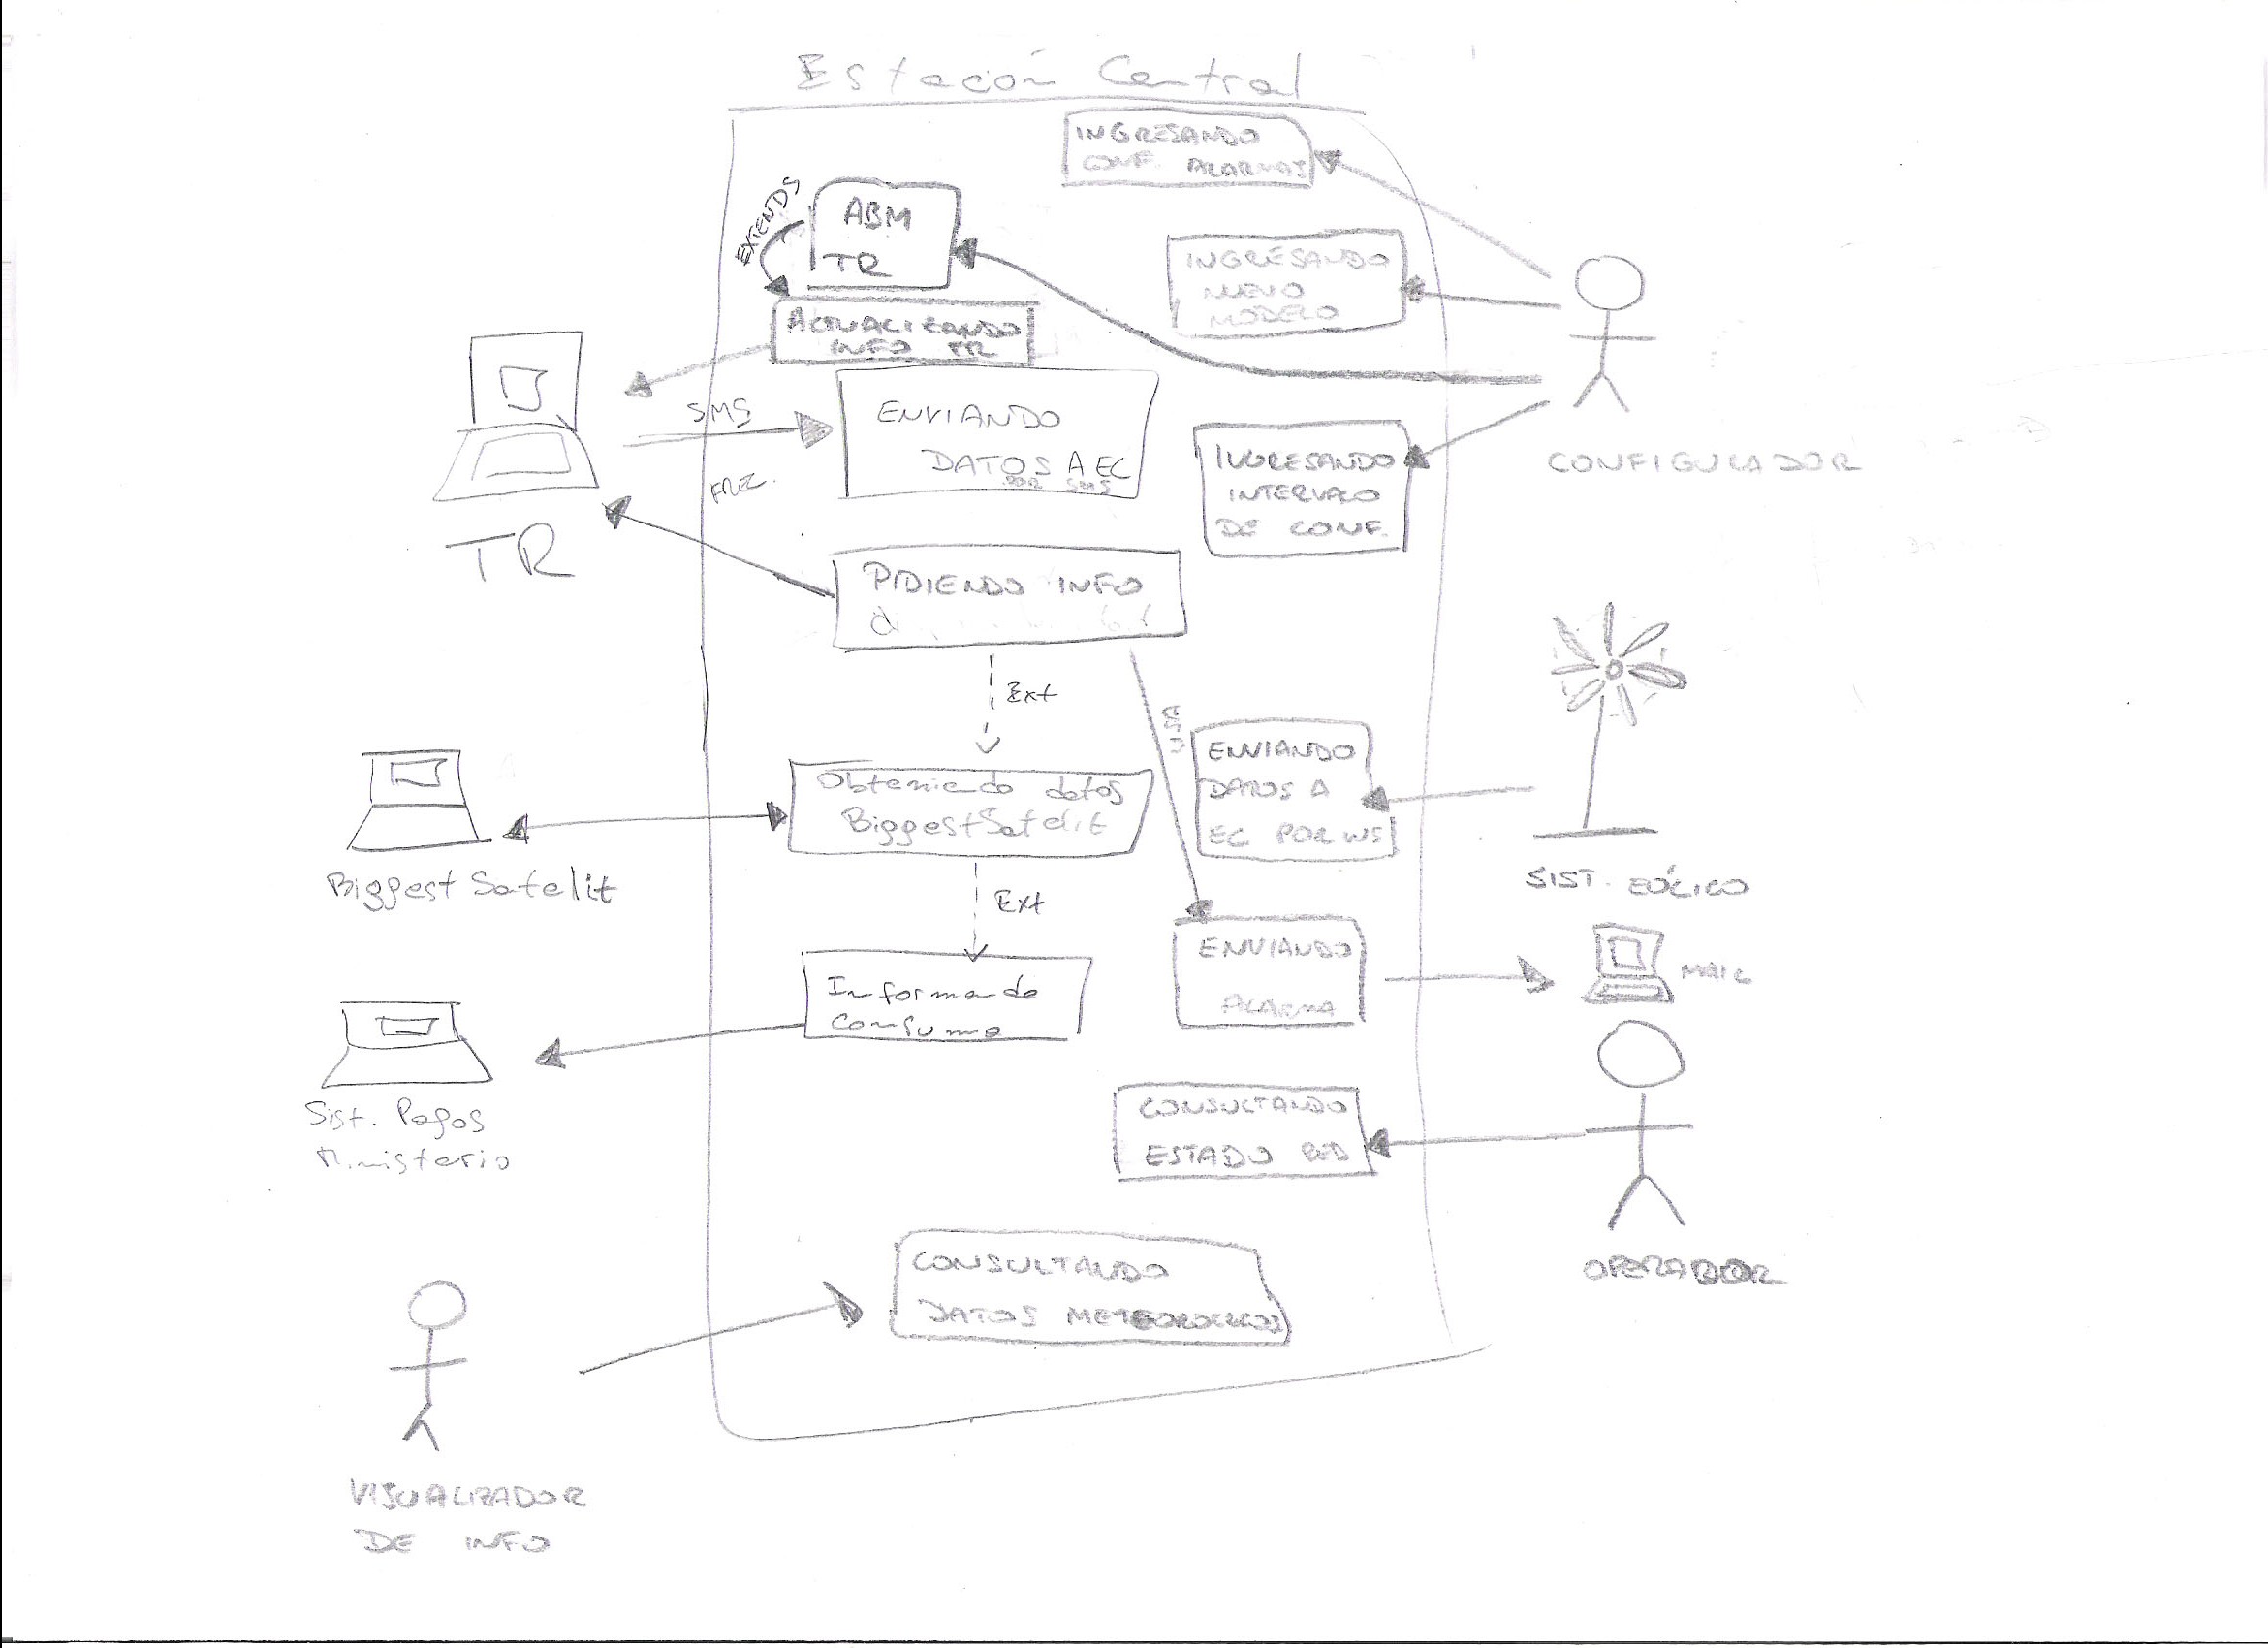 Estación Central
INGRESANDO
CONF. ALARMAS
EXTENDS
ABM
TR
INGRESANDO
NUEVO
MODELO
ACTUALIZANDO
INFO TR
SMS
FREC.
ENVIANDO
DATOS A EC
POR SMS
TR
INGRESANDO
INTERVALO
DE CONF.
CONFIGURADOR
PIDIENDO INFO
Ext
ENVIANDO
DATOS A
EC POR WS
SIST. EÓLICO
Obteniendo datos
BiggestSatelit
BiggestSatelit
Ext
ENVIANDO
ALARMA
MAIL
Informando
Consumo
Sist. Pagos
Ministerio
CONSULTANDO
ESTADO RED
OPERADOR
CONSULTANDO
DATOS METEOROLÓGICOS
VISUALIZADOR
DE INFO